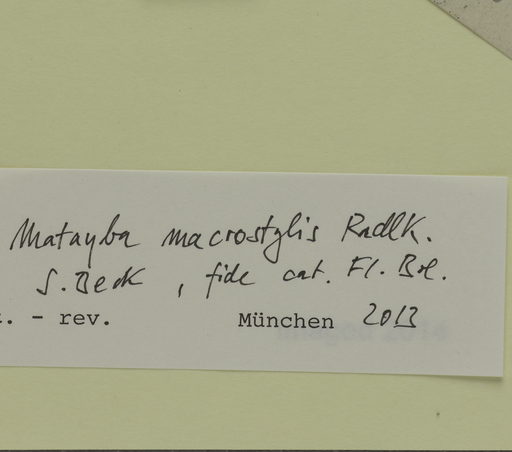 Matayba macrostylis Radlk.
S. Beck, fide cat. Fl. Bol.
. - rev. München 2013
Imaged 2014